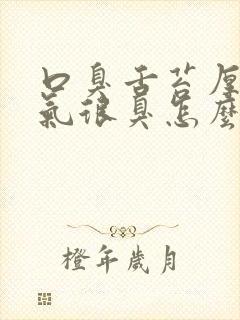 口臭舌苔厚
氣很臭怎麼
橙年歲月